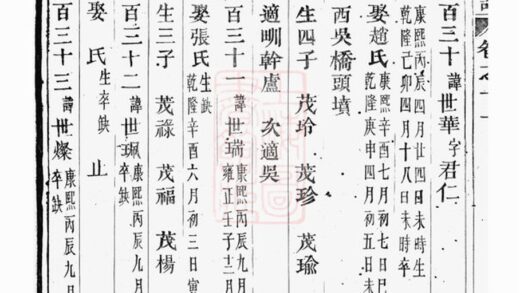 百三十諱世華字君仁
康熙丙辰四月廿四日未時生
乾隆己卯四月十八日未時卒
娶趙氏
康熙辛酉七月初七日巳
乾隆庚申四月初五日未
西吳橋頭墳
生四子 茂玲 茂珍 茂瑜
適 幹盧 次適吳
百三十一諱世瑞
雍正壬子十二月
娶張氏
生缺
乾隆辛酉六月初三日寅
生三子 茂祿 茂福 茂楊
百三十二諱世珮
康熙丙辰九月
卒缺
娶 氏 生卒缺 止
百三十三諱世燦
康熙丙辰九月
卒缺